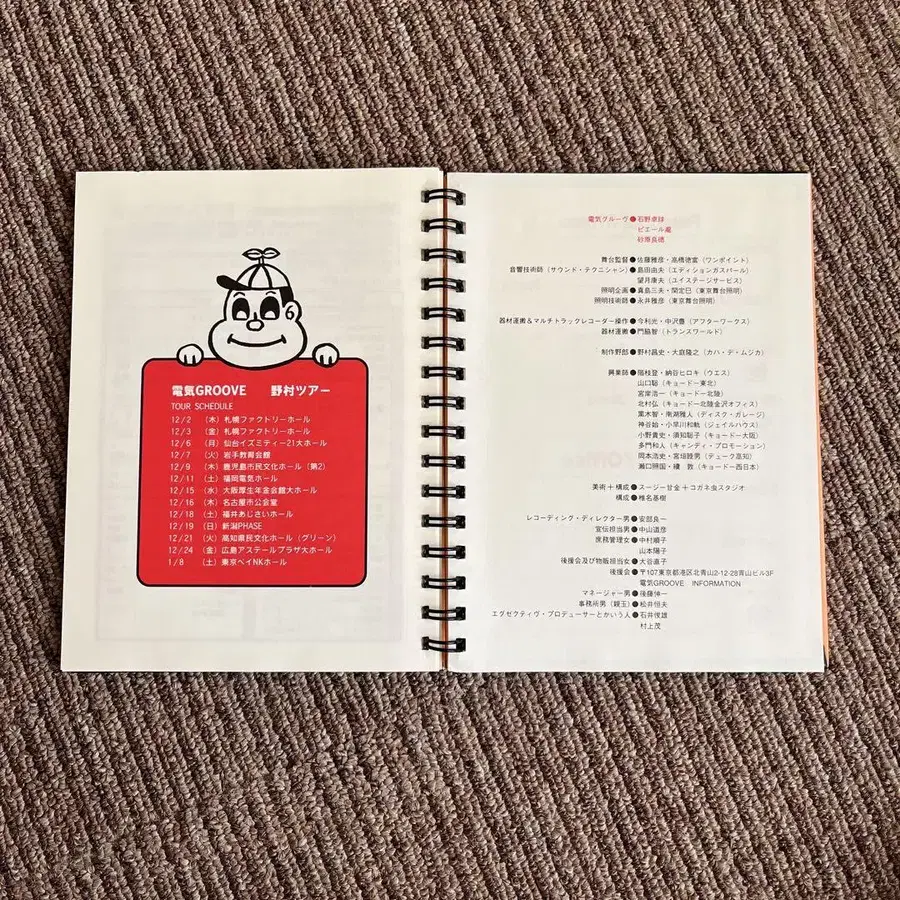 6
電気GROOVE 野村ツアー
TOUR SCHEDULE
12/2 (木) 札幌ファクトリーホール
12/3 (金) 札幌ファクトリーホール
12/6 (月) 仙台イズミティー21大ホール
12/7 (火) 岩手教育会館
12/9 (木) 鹿児島市民文化ホール(第2)
12/11 (土) 福岡電気ホール
12/15 (水) 大阪厚生年金会館大ホール
12/16 (木) 名古屋市公会堂
12/18 (土) 福井あじさいホール
12/19 (日) 新潟PHASE
12/21 (火) 高知県民文化ホール(グリーン)
12/24 (金) 広島アステールプラザ大ホール
1/8 (土) 東京ベイNKホール
電気グルーヴ●石野卓球
ピエール瀧
砂原良徳
舞台監督●佐藤雅彦・高橋徳富(ワンポイント)
音響技術師(サウンド・テクニシャン)●島田由夫(エディションガスパール)
望月康夫(ユイステージサービス)
照明企画●真島三夫・関定巳(東京舞台照明)
照明技術師●永井雅彦(東京舞台照明)
器材運搬&マルチトラックレコーダー操作●今利光・中沢豊(アフターワークス)
器材運搬●門脇智(トランズワールド)
制作野郎●野村昌史・大庭隆之(カハ・デ・ムジカ)
興業師●階枝登・納谷ヒロキ(ウエス)
山口聡(キョードー東北)
宮岸浩一(キョードー北陸)
北村弘(キョードー北陸金沢オフィス)
黒木智・南湖雅人(ディスク・ガレージ)
神谷始・小早川和軌(ジェイルハウス)
小野貴史・須知聡子(キョードー大阪)
多門和人(キャンディ・プロモーション)
岡本浩史・宮垣睦男(デューク高知)
瀬口照国・續 敦(キョードー西日本)
美術+構成●スージー甘金+コガネ虫スタジオ
構成●椎名基樹
レコーディング・ディレクター男●安部良一
宣伝担当男●中山道彦
庶務管理女●中村順子
山本陽子
後援会及び物販担当女●大谷直子
後援会●〒107東京都港区北青山2-12-28青山ビル3F
電気GROOVE INFORMATION
マネージャー男●後藤伸一
事務所男(親玉)●松井恒夫
エグゼクティヴ・プロデューサーとかいう人●石井俊雄
村上茂